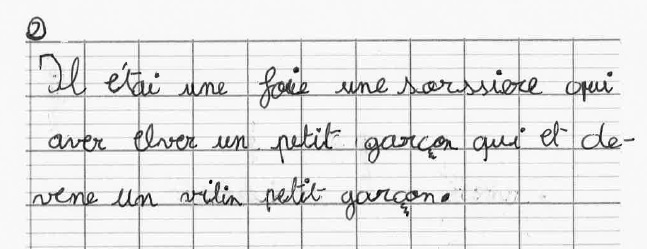 ②
Il étai une foie une sorssiere qui
aver elver un petit garçon qui et de-
vene un vilin petit garçon.